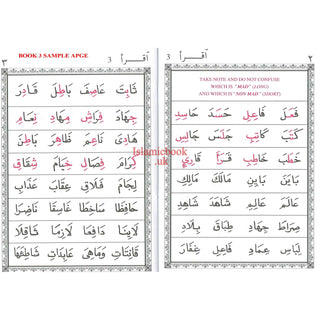 ٢ اقرأ 3
TAKE NOTE AND DO NOT CONFUSE
WHICH IS "MAD" (LONG)
AND WHICH IS "NON MAD" (SHORT)
فَعَلَ فَاعِلِ حَسَدَ حَاسِدِ
كَتَبَ كَاتِبِ جَلَسَ جَالِسِ
خَطَبَ خَاطِبِ قَرَأَ قَارِئِ
مَالَكَ مَالِكَ
شَهِدَ شَاهِدِ
صِرَاطَ جِهَادِ طِبَاقَ بِلَادِ
لِبَاسِ عِمَادِ فَاعِلِ غَفَّارَ
٣ اقرأ 3
BOOK 3 SAMPLE APGE
ثَابِتَ عَاصِفَ بَاطِلَ قَادِرَ
جِهَادَ فِرَاشِ مِهَادِ نِعَامِ
هَادِئَ نَاعِمَ ظَاهِرَ بَاطِنَ
كِرَامَ فِصَالِ خِيَامَ شِقَاقِ
لِجَامَ فَلَاقِ عِقَابَ عَذَابِ
حَافِظًا سَاخِطًا غَاسِقًا نَاصِرًا
دَافِعًا لَازِمًا
قَانِتَاتِ عَابِدَاتِ
Islamicbook
.uk